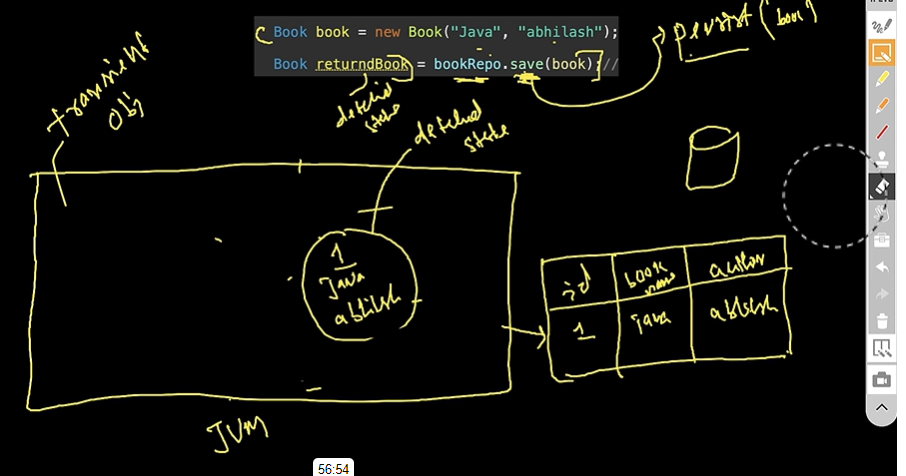 Book book = new Book("Java", "abhilash");
Book returndBook = bookRepo.save(book);//
persist(book)
transient
obj
detched
state
detched
state
1
Java
abhilsh
id
book
name
author
1
Java
abhilsh
JVM
56:54